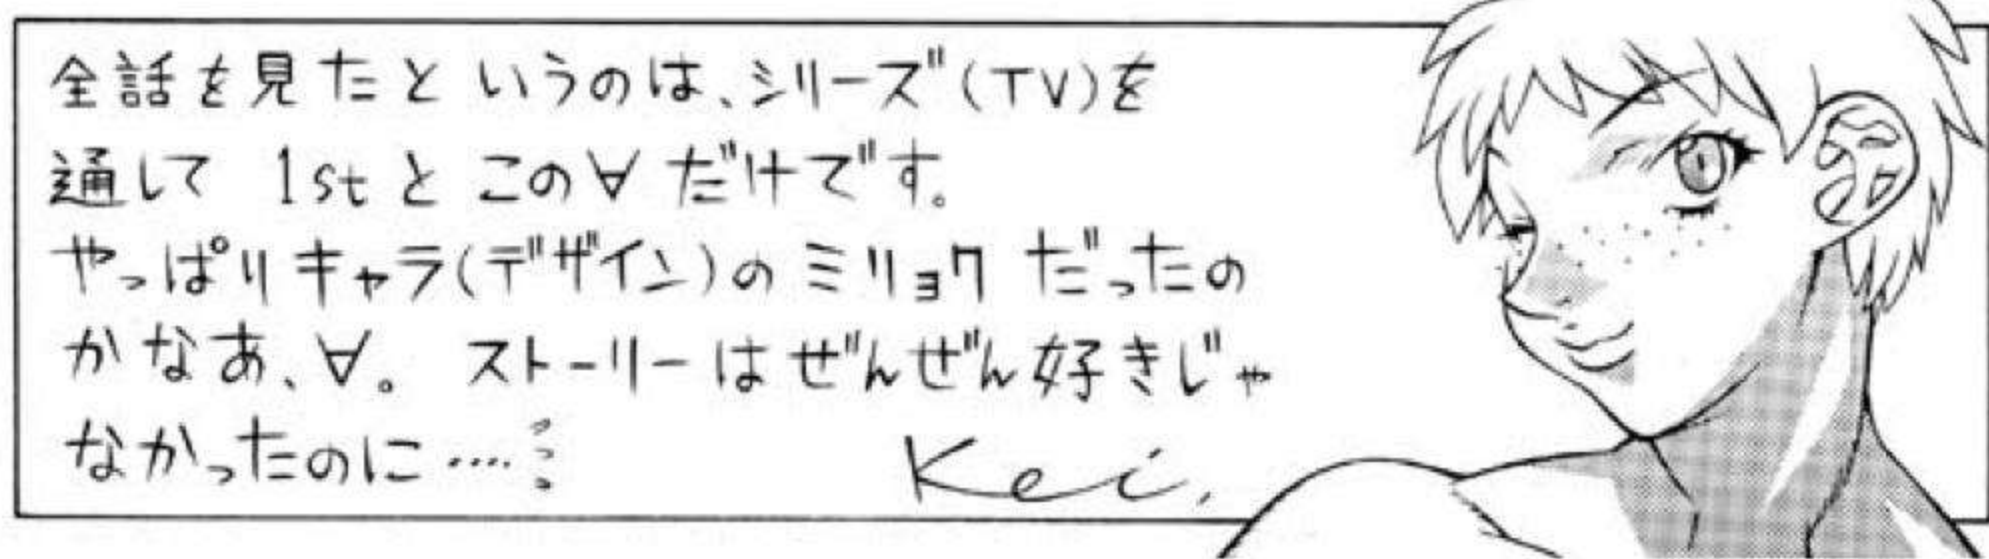 全話を見たというのは、シリーズ(TV)を
通して 1stとこの∀だけです。
やっぱりキャラ(デザイン)のミリョクだったの
かなあ、∀。 ストーリーはぜんぜん好きじゃ
なかったのに‥‥
Kei.